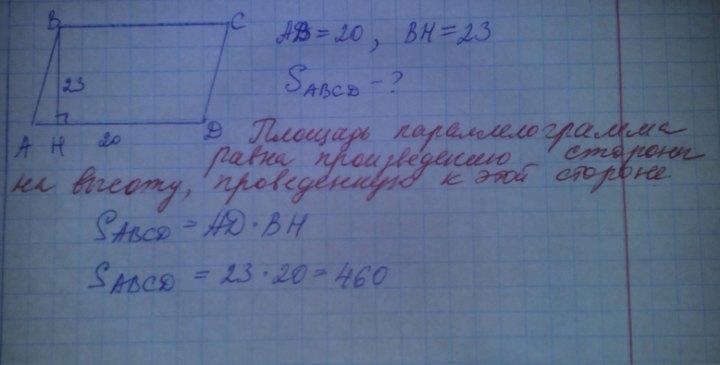 B C
AD = 20, BH = 23
23
S ABCD - ?
A H 20 D
Площадь параллелограмма
равна произведению стороны
на высоту, проведенную к этой стороне.
S ABCD = AD · BH
S ABCD = 23 · 20 = 460